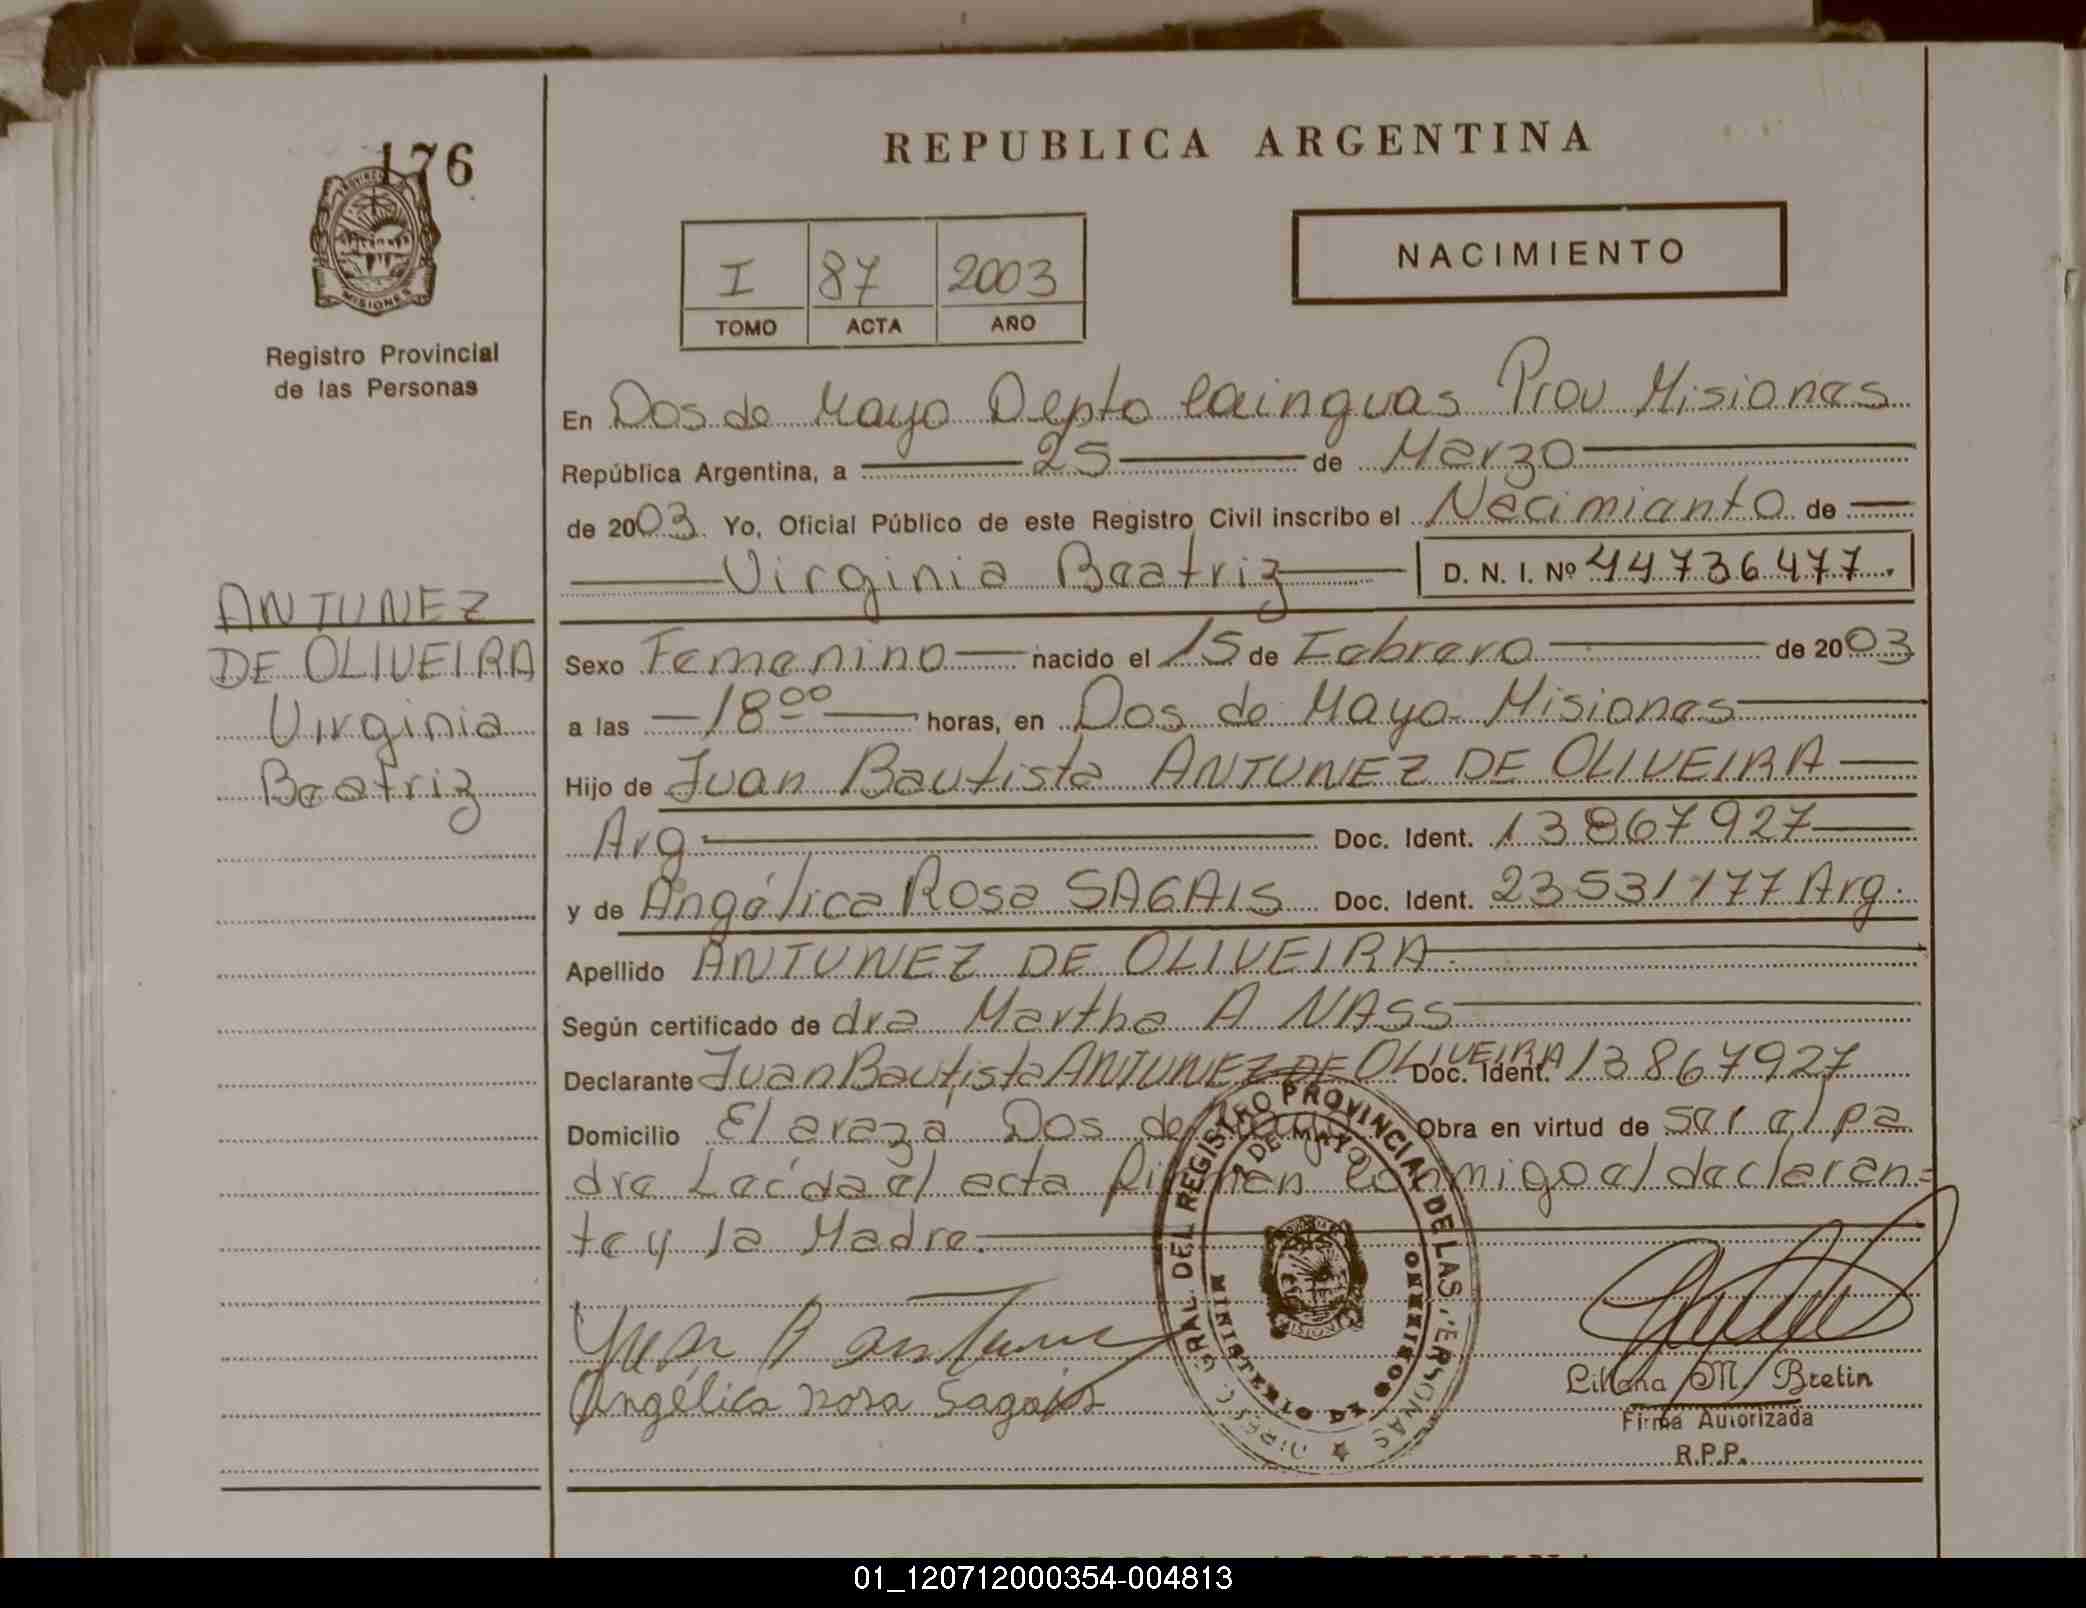 176
PROVINCIA DE
MISIONES
Registro Provincial
de las Personas
REPUBLICA ARGENTINA
I 87 2003
TOMO ACTA AÑO
NACIMIENTO
En Dos de Mayo Depto Cainguas Prov Misiones
República Argentina, a 25 de Marzo
de 2003. Yo, Oficial Público de este Registro Civil inscribo el Nacimiento de
Virginia Beatriz D. N. I. Nº 44736477.
ANTUNEZ
DE OLIVEIRA
Virginia
Beatriz
Sexo Femenino nacido el 15 de Febrero de 2003
a las 18 00 horas, en Dos de Mayo Misiones
Hijo de Juan Bautista ANTUNEZ DE OLIVEIRA
Arg Doc. Ident. 13867927
y de Angélica Rosa SAGAIS Doc. Ident. 23531177 Arg.
Apellido ANTUNEZ DE OLIVEIRA
Según certificado de dra Martha A NASS
Declarante Juan Bautista ANTUNEZ DE OLIVEIRA Doc. Ident. 13867927
Domicilio El araza Dos de Mayo Obra en virtud de ser el pa
dre Leída el acta firman conmigo el declaran=
te y la Madre.
DIRECC. GRAL. DEL REGISTRO PROVINCIAL DE LAS PERSONAS
2 DE MAYO
MINISTERIO DE GOBIERNO
MISIONES
Juan B Antune
Angélica rosa Sagais
Liliana M. Bretin
Firma Autorizada
R.P.P.
01_120712000354-004813